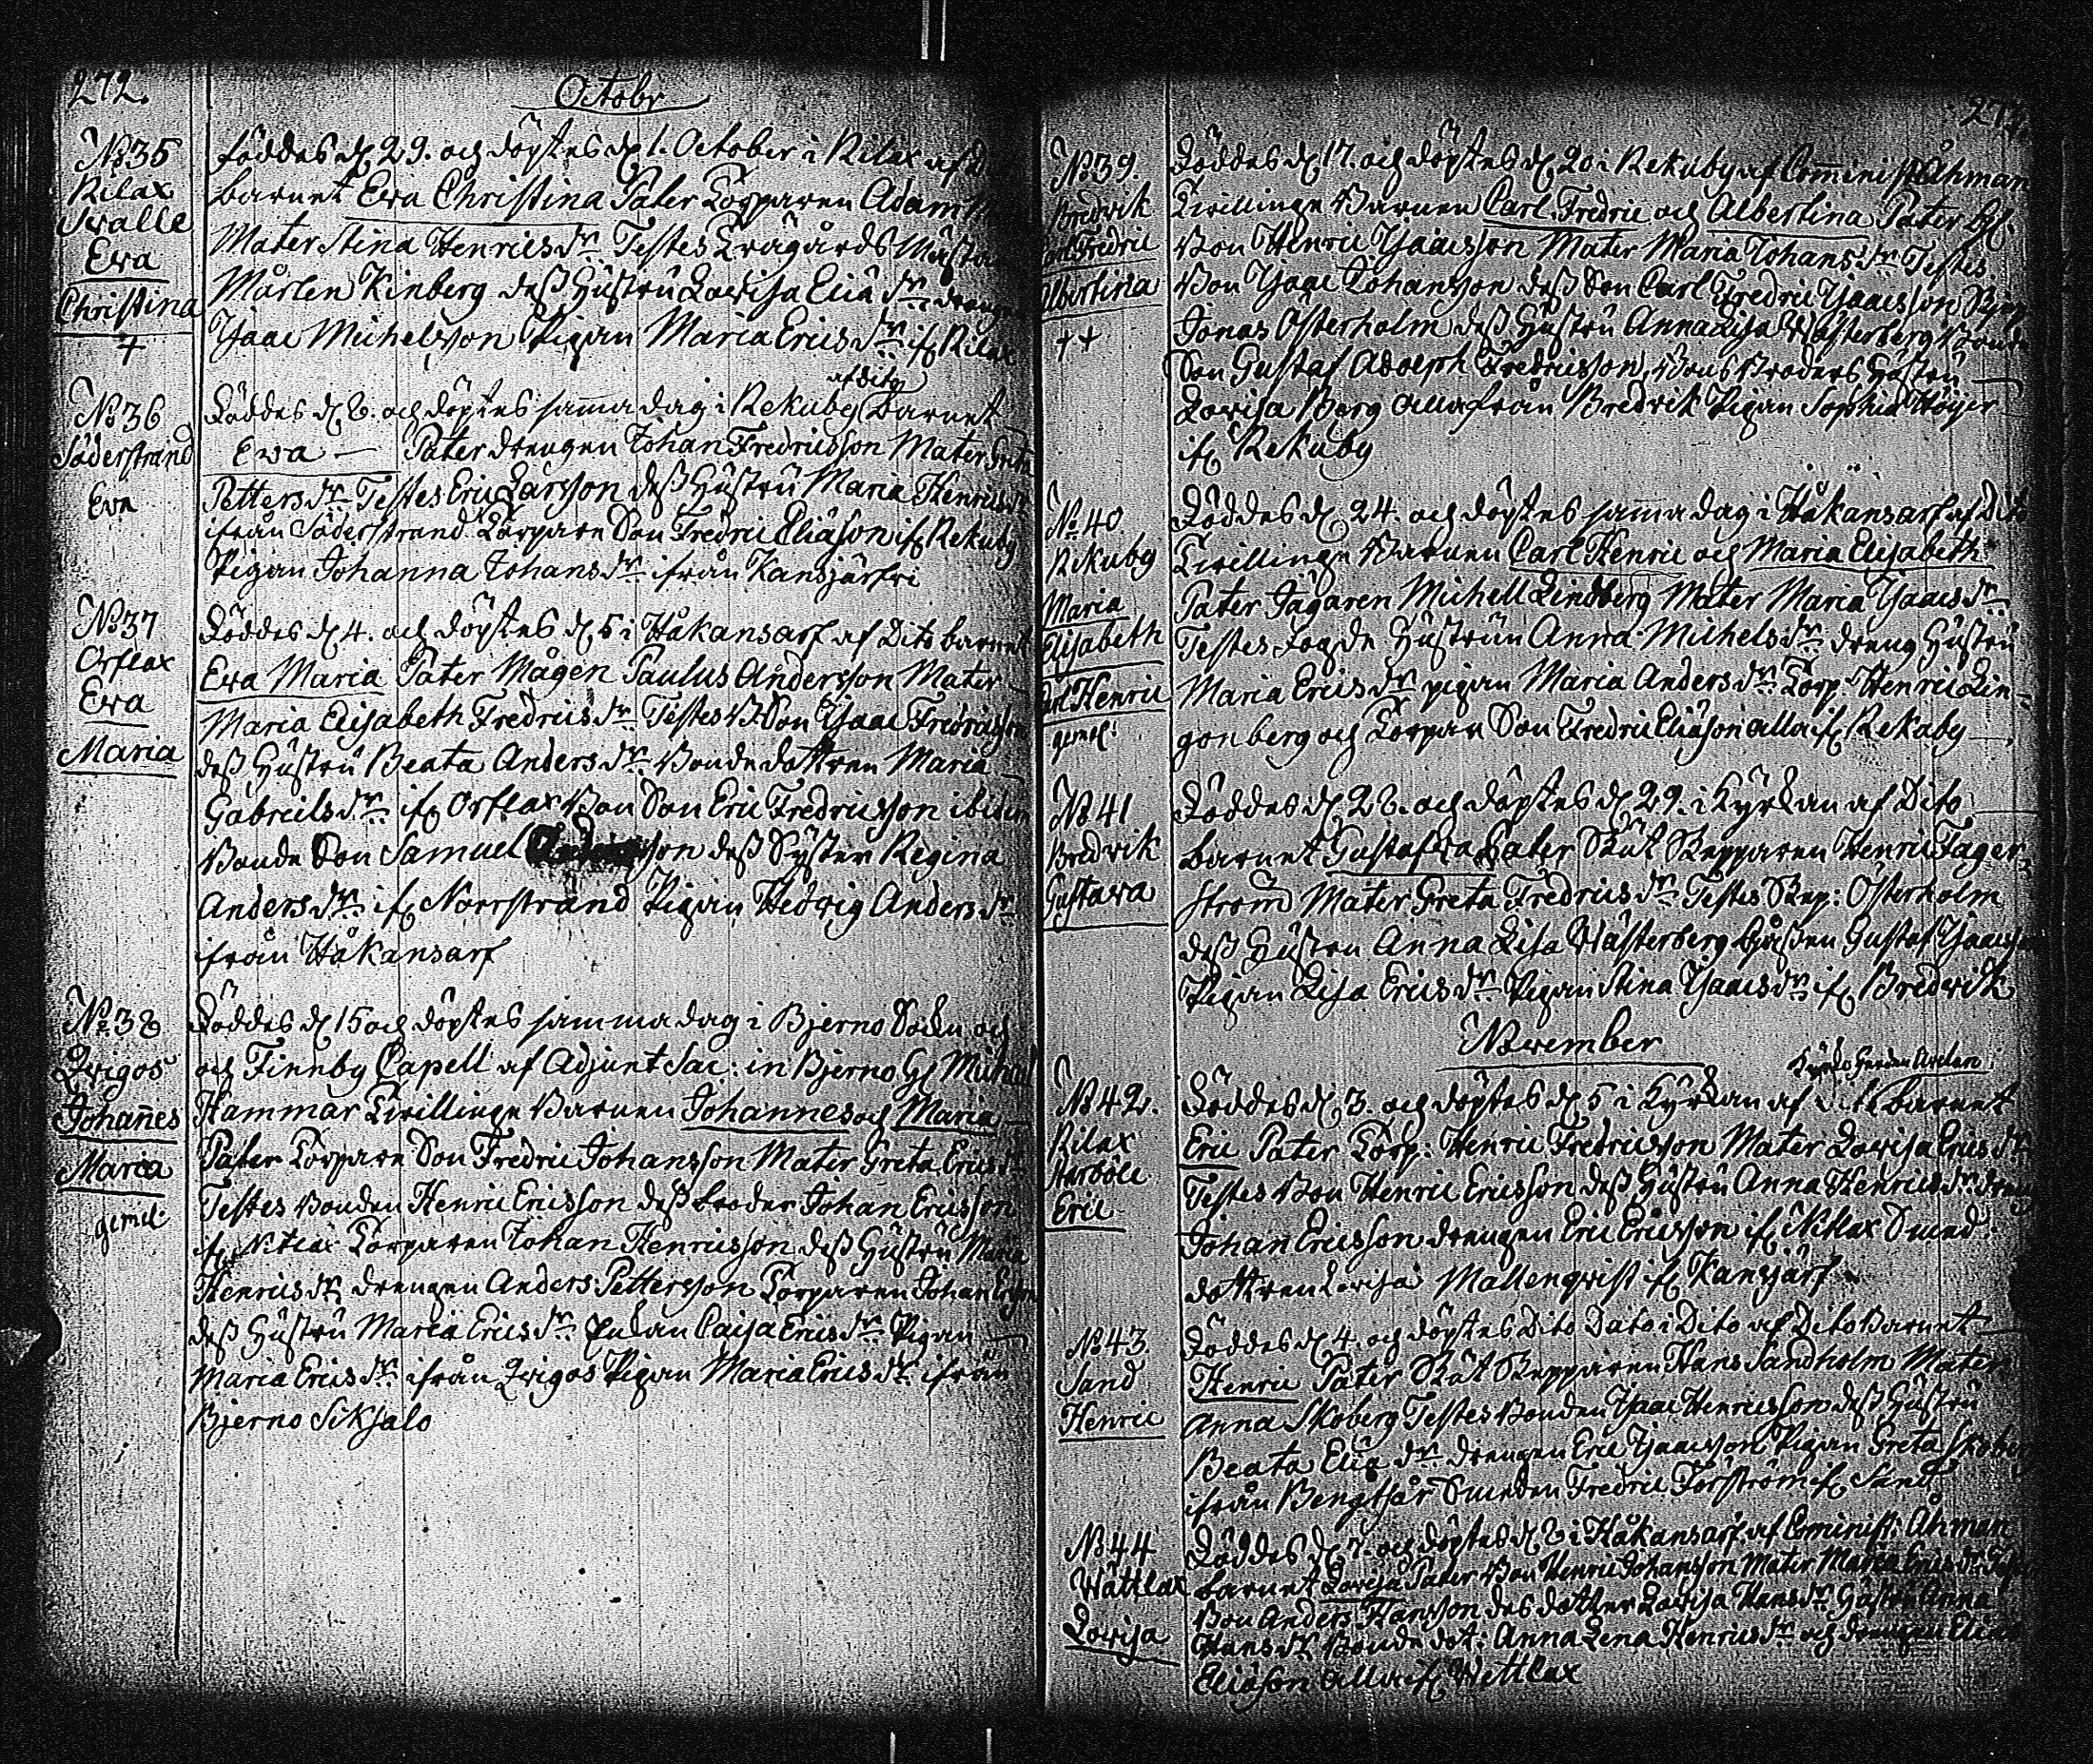 272.
Octobr
No 35
Rilax
Swalle
Eva
Christina
+
föddes d 29. och döptes d 1. October i Rilax af
barnet Eva Christina Pater Torparen Adam
Mater Stina Henrics dr. Testes Trägårds Mästa
Mårten Kinberg dess Hustru Lovisa Eliæ dr. dreng
Isaac Michelsson Pigan Maria Erics dr. if Rilax
No 36
Söderstrand
Eva
af dito
Föddes d 2. och döptes samma dag i Rekuby barnet
Eva — Pater drengen Johan Fredricsson Mater Greta
Petters dr. Testes Eric Larsson dess Hustru Maria Henrics dr
ifrån Söderstrand Torpare Son Fredric Eliæson if Rekuby
Pigan Johanna Johans dr. ifrån Kansjärfvi
No 37
Orflax
Eva
Maria
Föddes d 4. och döptes d 5 i Håkansarf af Dito barnet
Eva Maria Pater Mågen Paulus Andersson Mater
Maria Elisabeth Fredrics dr. Testes B. Son Isaac Fredricsson
dess Hustru Beata Anders dr. Bonde dottren Maria
Gabriels dr. if Orflax Bon Son Eric Fredricsson ibidem
Bonde Son Samuel son dess Syster Regina
Anders dr. if Norrstrand Pigan Hedvig Anders dr
ifrån Håkansarf
No 38
Qvigos
Johannes
Maria
gemel:
Föddes d 15 och döptes samma dag i Bjerno Sockn och
och Finnby Capell af Adjunt Sac: in Bjerno H Michael
Hammar Tvillinge Barnen Johannes och Maria
Pater Torpare Son Fredric Johansson Mater Greta Erics dr
Testes Bonden Henric Ericsson dess broder Johan Ericsson
Torparen Johan Henricsson dess Hustru Maria
Henrics dr. drengen Anders Pettersson Torparen Johan
dess Hustru Maria Erics dr. Enkan Caisa Erics dr. Pigan
Maria Erics dr. ifrån Qvigos Pigan Maria Erics dr. ifrån
Bjerno Siksalo
No 39.
Bredvik
Carl Fredric
Albertina
++
Föddes d 17. och döptes d 20 i Rekuby af Comminist Åhman
Tvillinge Barnen Carl Fredric och Albertina Pater
Bon Henric Isaacsson Mater Maria Johans dr. Testes
Bon Isaac Johansson dess Son Carl Fredric Isaacsson
Jonas Österholm dess Hustru Anna Lisa Wästerberg Bonde
Son Gustaf Adolph Fredricsson, Bons Broders Hustru
Lovisa Berg alla från Bredvik Pigan Sophia Höijer
if Rekuby
No 40
Rekuby
Maria
Elisabeth
Carl Henric
gemel:
Föddes d 24. och döptes samma dag i Håkansarf af Dito
Tvillinge Barnen Carl Henric och Maria Elisabeth
Pater Jägaren Michell Lindberg Mater Maria Isaacs dr
Testes Hustrun Anna Michels dr. dreng Hustru
Maria Erics dr pigan Maria Anders dr. Torp. Henric Lin-
gonberg och Torpar Son Fredric Eliæson alla if Rekuby
No 41
Bredvik
Gustava
Föddes d 28. och döptes d 29. i Kyrkan af Dito
barnet Gustafva Pater Skut Skepparen Henric Fager-
ström Mater Greta Fredrics dr. Testes Skep: Österholm
dess Hustru Anna Lisa Wästerberg Gossen Gustaf Isaacsson
Pigan Lisa Erics dr. Pigan Stina Isaacs dr. if Bredvik
November
No 42.
Rilax
Harböle
Eric
Föddes d 3. och döptes d 5 i Kyrkan af barnet
Eric Pater Torp: Henric Fredricsson Mater Lovisa Erics dr
Testes Bon Henric Ericsson dess Hustru Anna Henrics dr. dreng
Johan Ericsson drengen Eric Ericsson if Rilax Smed
dottren Lovisa Mallenqvist if Kansjärf
No 43.
Sand
Henric
Föddes d 4. och döptes Dito Dato i Dito af Dito Barnet
Henric Pater Skut Skepparen Hans Sandholm Mater
Anna Skoberg Testes Bonden Isaac Henricsson dess Hustru
Beata Eliæ dr. drengen Eric Isaacsson Pigan Greta Skoberg
ifrån Bengtsår Smeden Fredric Förström if Sand
No 44
Wättlax
Lovisa
Föddes d 7. och döptes d 8 i Håkansarf af Cominist: Åhman
barnet Lovisa Pater Bon Henric Johansson Mater Maria Erics dr.
Bon Anders Hansson des dotter Lovisa Hans dr Hustru Anna
Hans dr. Bonde dot: Anna Lena Henrics dr och drengen Elias
Eliæson alla if Wettlax